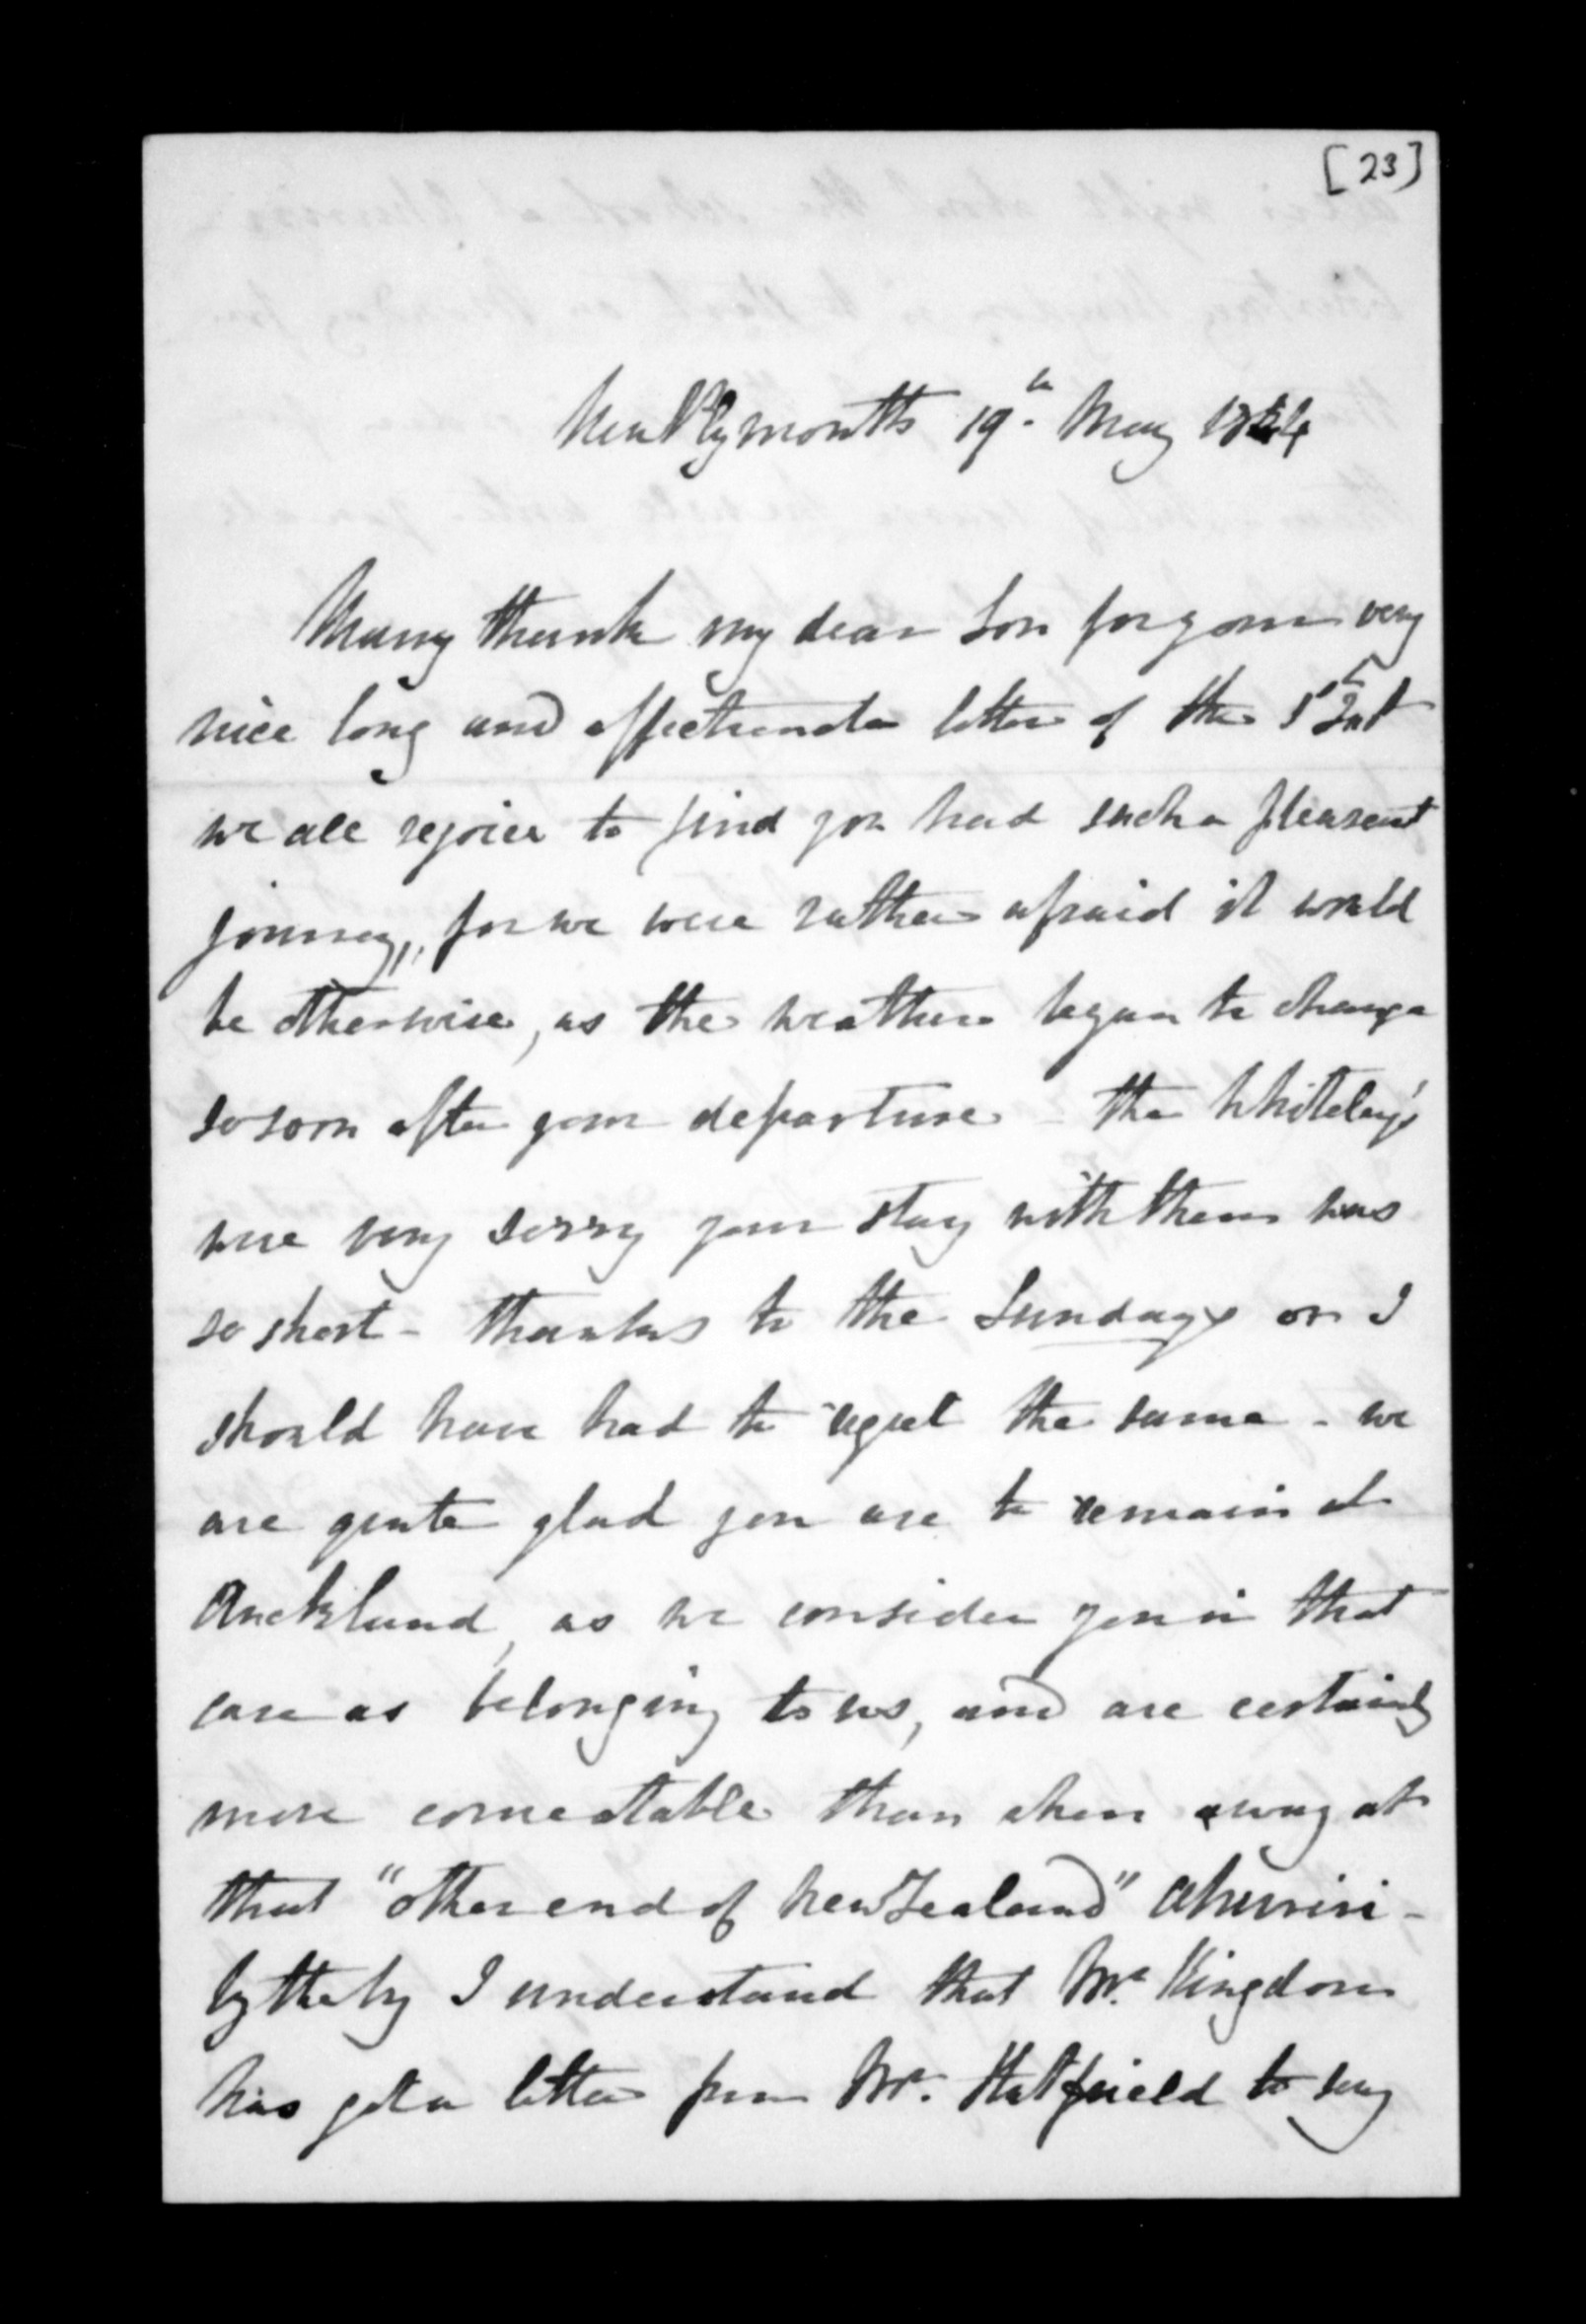 [23]
New Plymouth 19th May 1854
Many thanks my dear Son for your very
nice long and affectionate letter of the 1st Inst
we all rejoice to find you had such a pleasant
journey, for we were rather afraid it would
be otherwise, as the weather began to change
so soon after your departure - the Whiteley's
were very sorry your stay with them was
so short - thanks to the Sundays or I
should have had to regret the same - we
are quite glad you are to remain at
Auckland, as we consider you in that
case as belonging to us, and are certainly
more comeatable than when away at
that "other end of New Zealand" Ahuriri -
by the by I understand that Mr. Kingdon
has got a letter from Mr. Hatfield to say